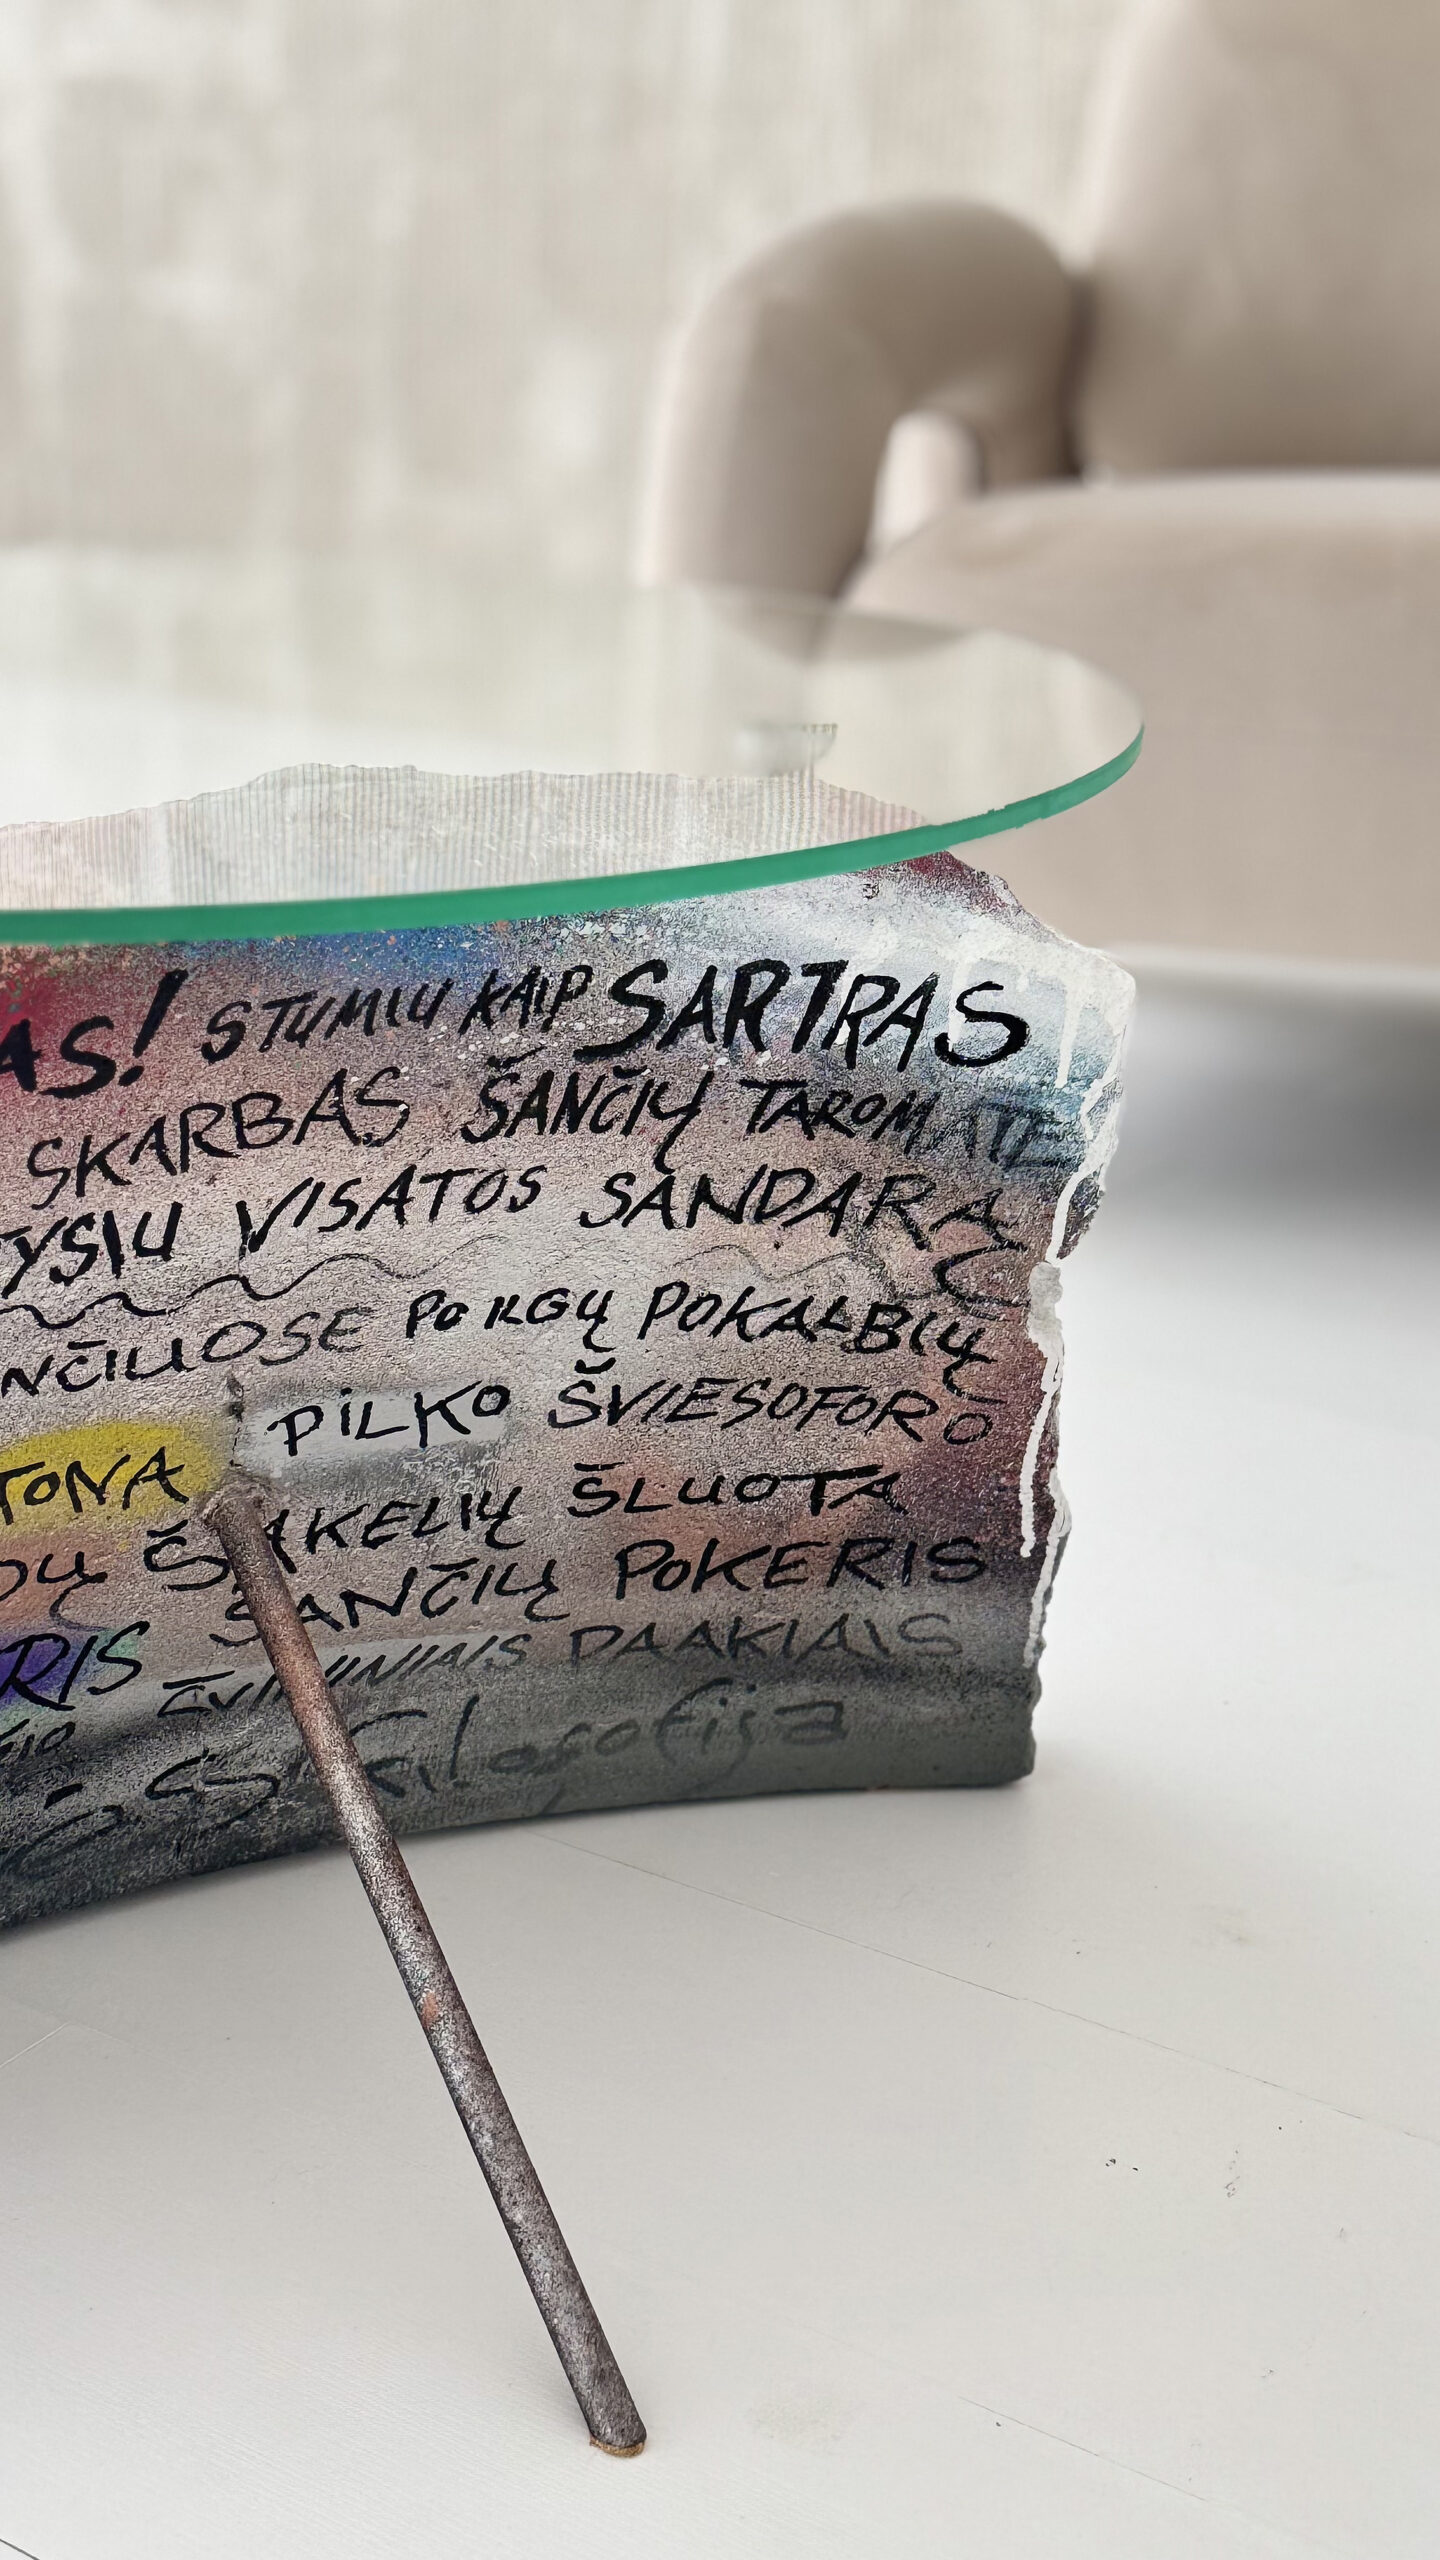 AS! STUMIU KAIP SARTRAS
SKARBAS ŠANČIŲ TAROMATE
TYSIU VISATOS SANDARĄ
NČIUOSE PORGŲ POKALBIŲ
TONA PILKO ŠVIESOFORO
DŲ ŠAKELIŲ ŠLUOTA
RIS ŠANČIŲ POKERIS
PAAKIAIS
filosofija